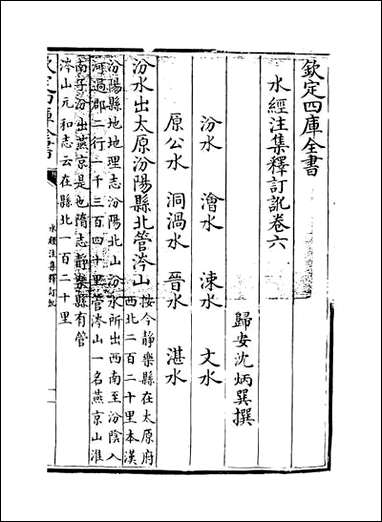 欽定四庫全書
水經注集釋訂訛卷六
歸安沈炳巽撰
汾水　澮水　涑水　文水
原公水　洞渦水　晉水　湛水
汾水出太原汾陽縣北管涔山
按今靜樂縣在太原府
西北二百二十里本漢
汾陽縣地地理志汾陽北山汾水所出西南至汾陰入
河過郡二行一千三百四十里管涔山一名燕京山淮
南子汾出燕京是也隋志靜樂縣有管
涔山元和志云在縣北一百二十里
欽定四庫全書
水經注集釋訂訛